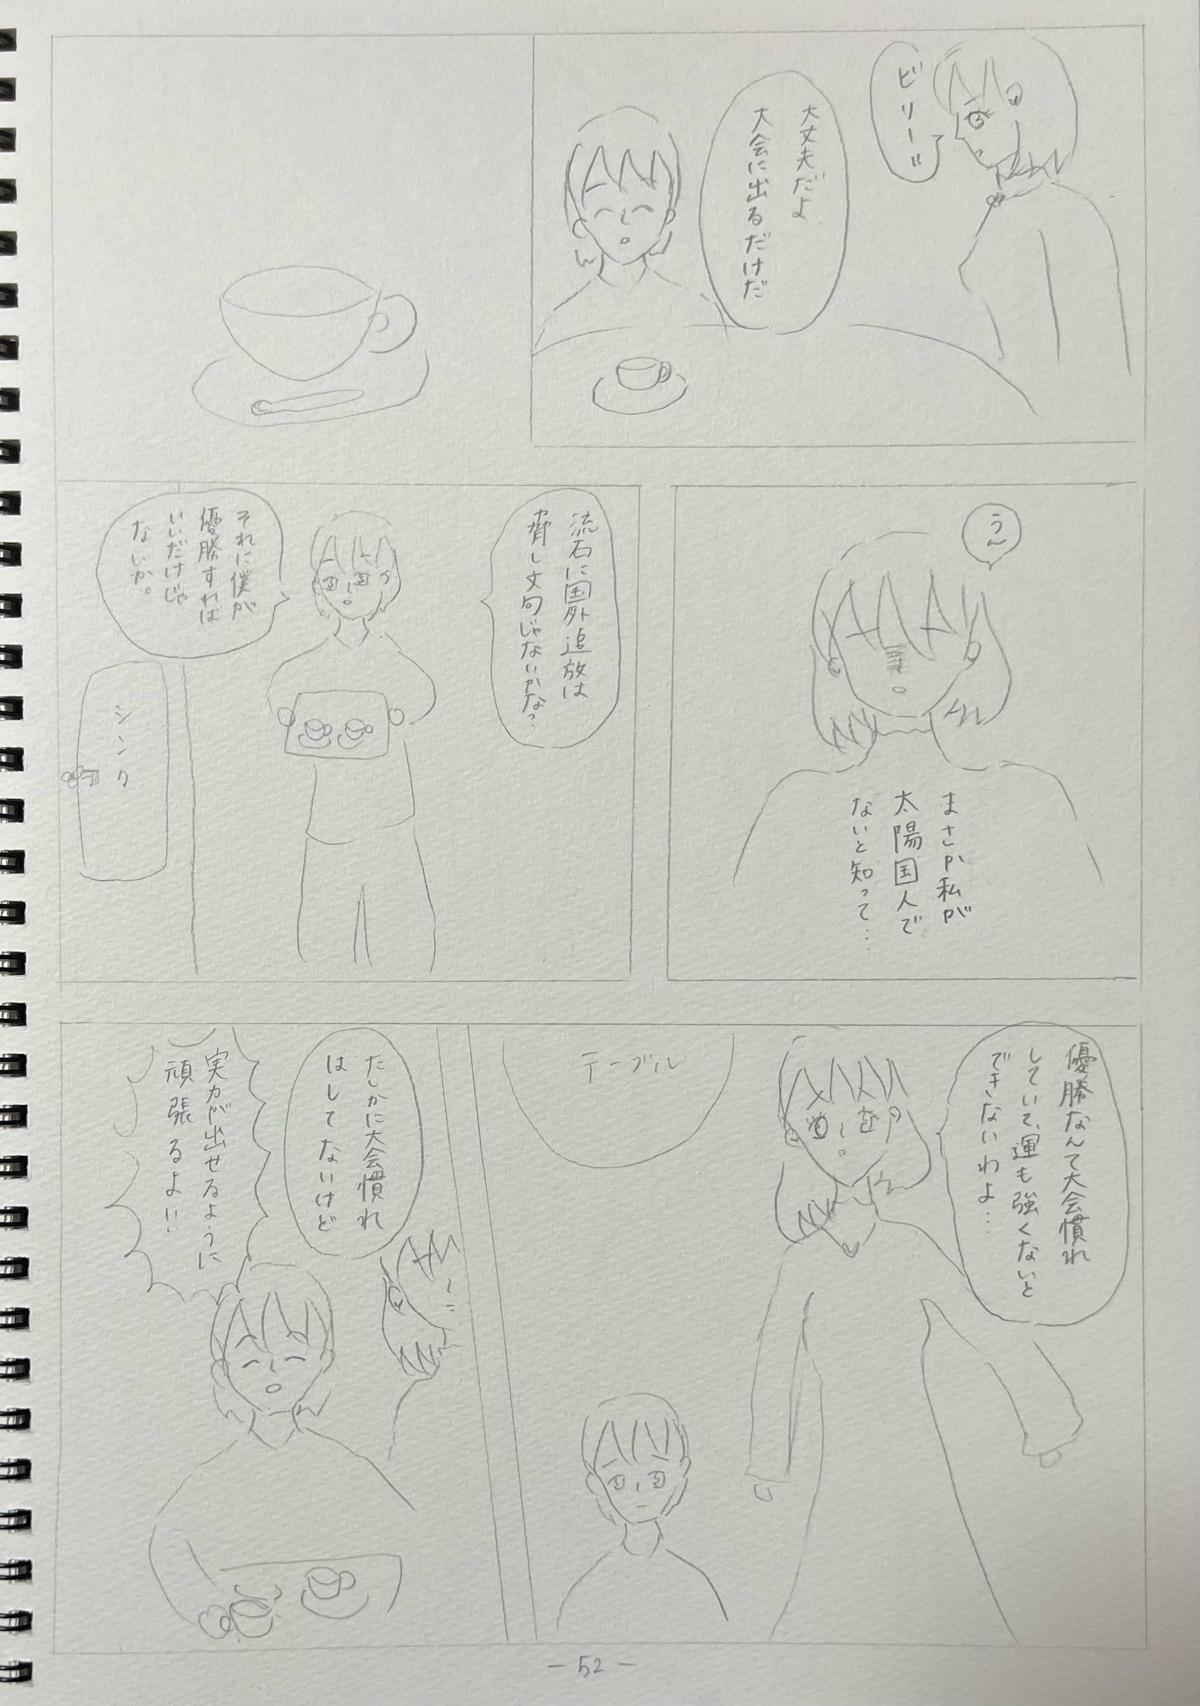 ビリー!!
大丈夫だよ
大会に出るだけだ
うん
まさか私が
太陽国人で
ないと知って…
流石に国外追放は
脅し文句じゃないかな?
それに僕が
優勝すれば
いいだけじゃ
ないか。
シンク
優勝なんて大会慣れ
していて、運も強くないと
できないわよ…
テーブル
たしかに大会慣れ
はしてないけど
実力が出せるように
頑張るよ!!
- 52 -